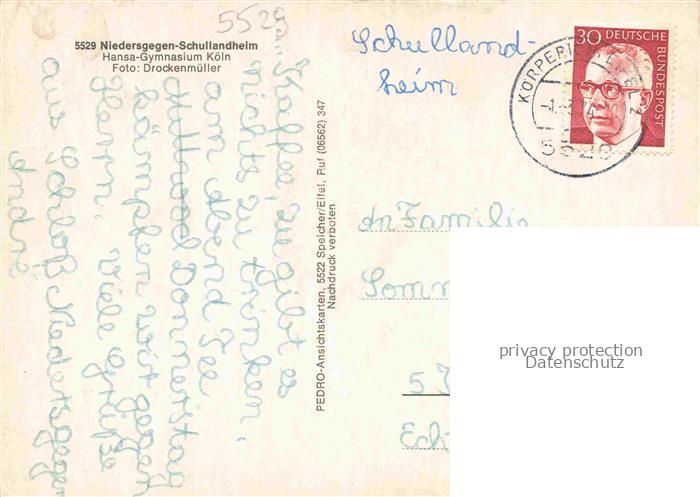 5529
5529 Niedersgegen-Schullandheim
Hansa-Gymnasium Köln
Foto: Drockenmüller
Schulland-
heim
30 DEUTSCHE
BUNDESPOST
5529
Kaffee, zu gibt es
nichts zu trinken.
am Abend Tee
Donnerstag
kämpfen wir gegen
Herrn. Viele Grüße
aus Schloß Niedersgegen
André
PEDRO-Ansichtskarten, 5522 Speicher/Eifel, Ruf (06562) 347
Nachdruck verboten
An Familie
Somm
5
privacy protection
Datenschutz